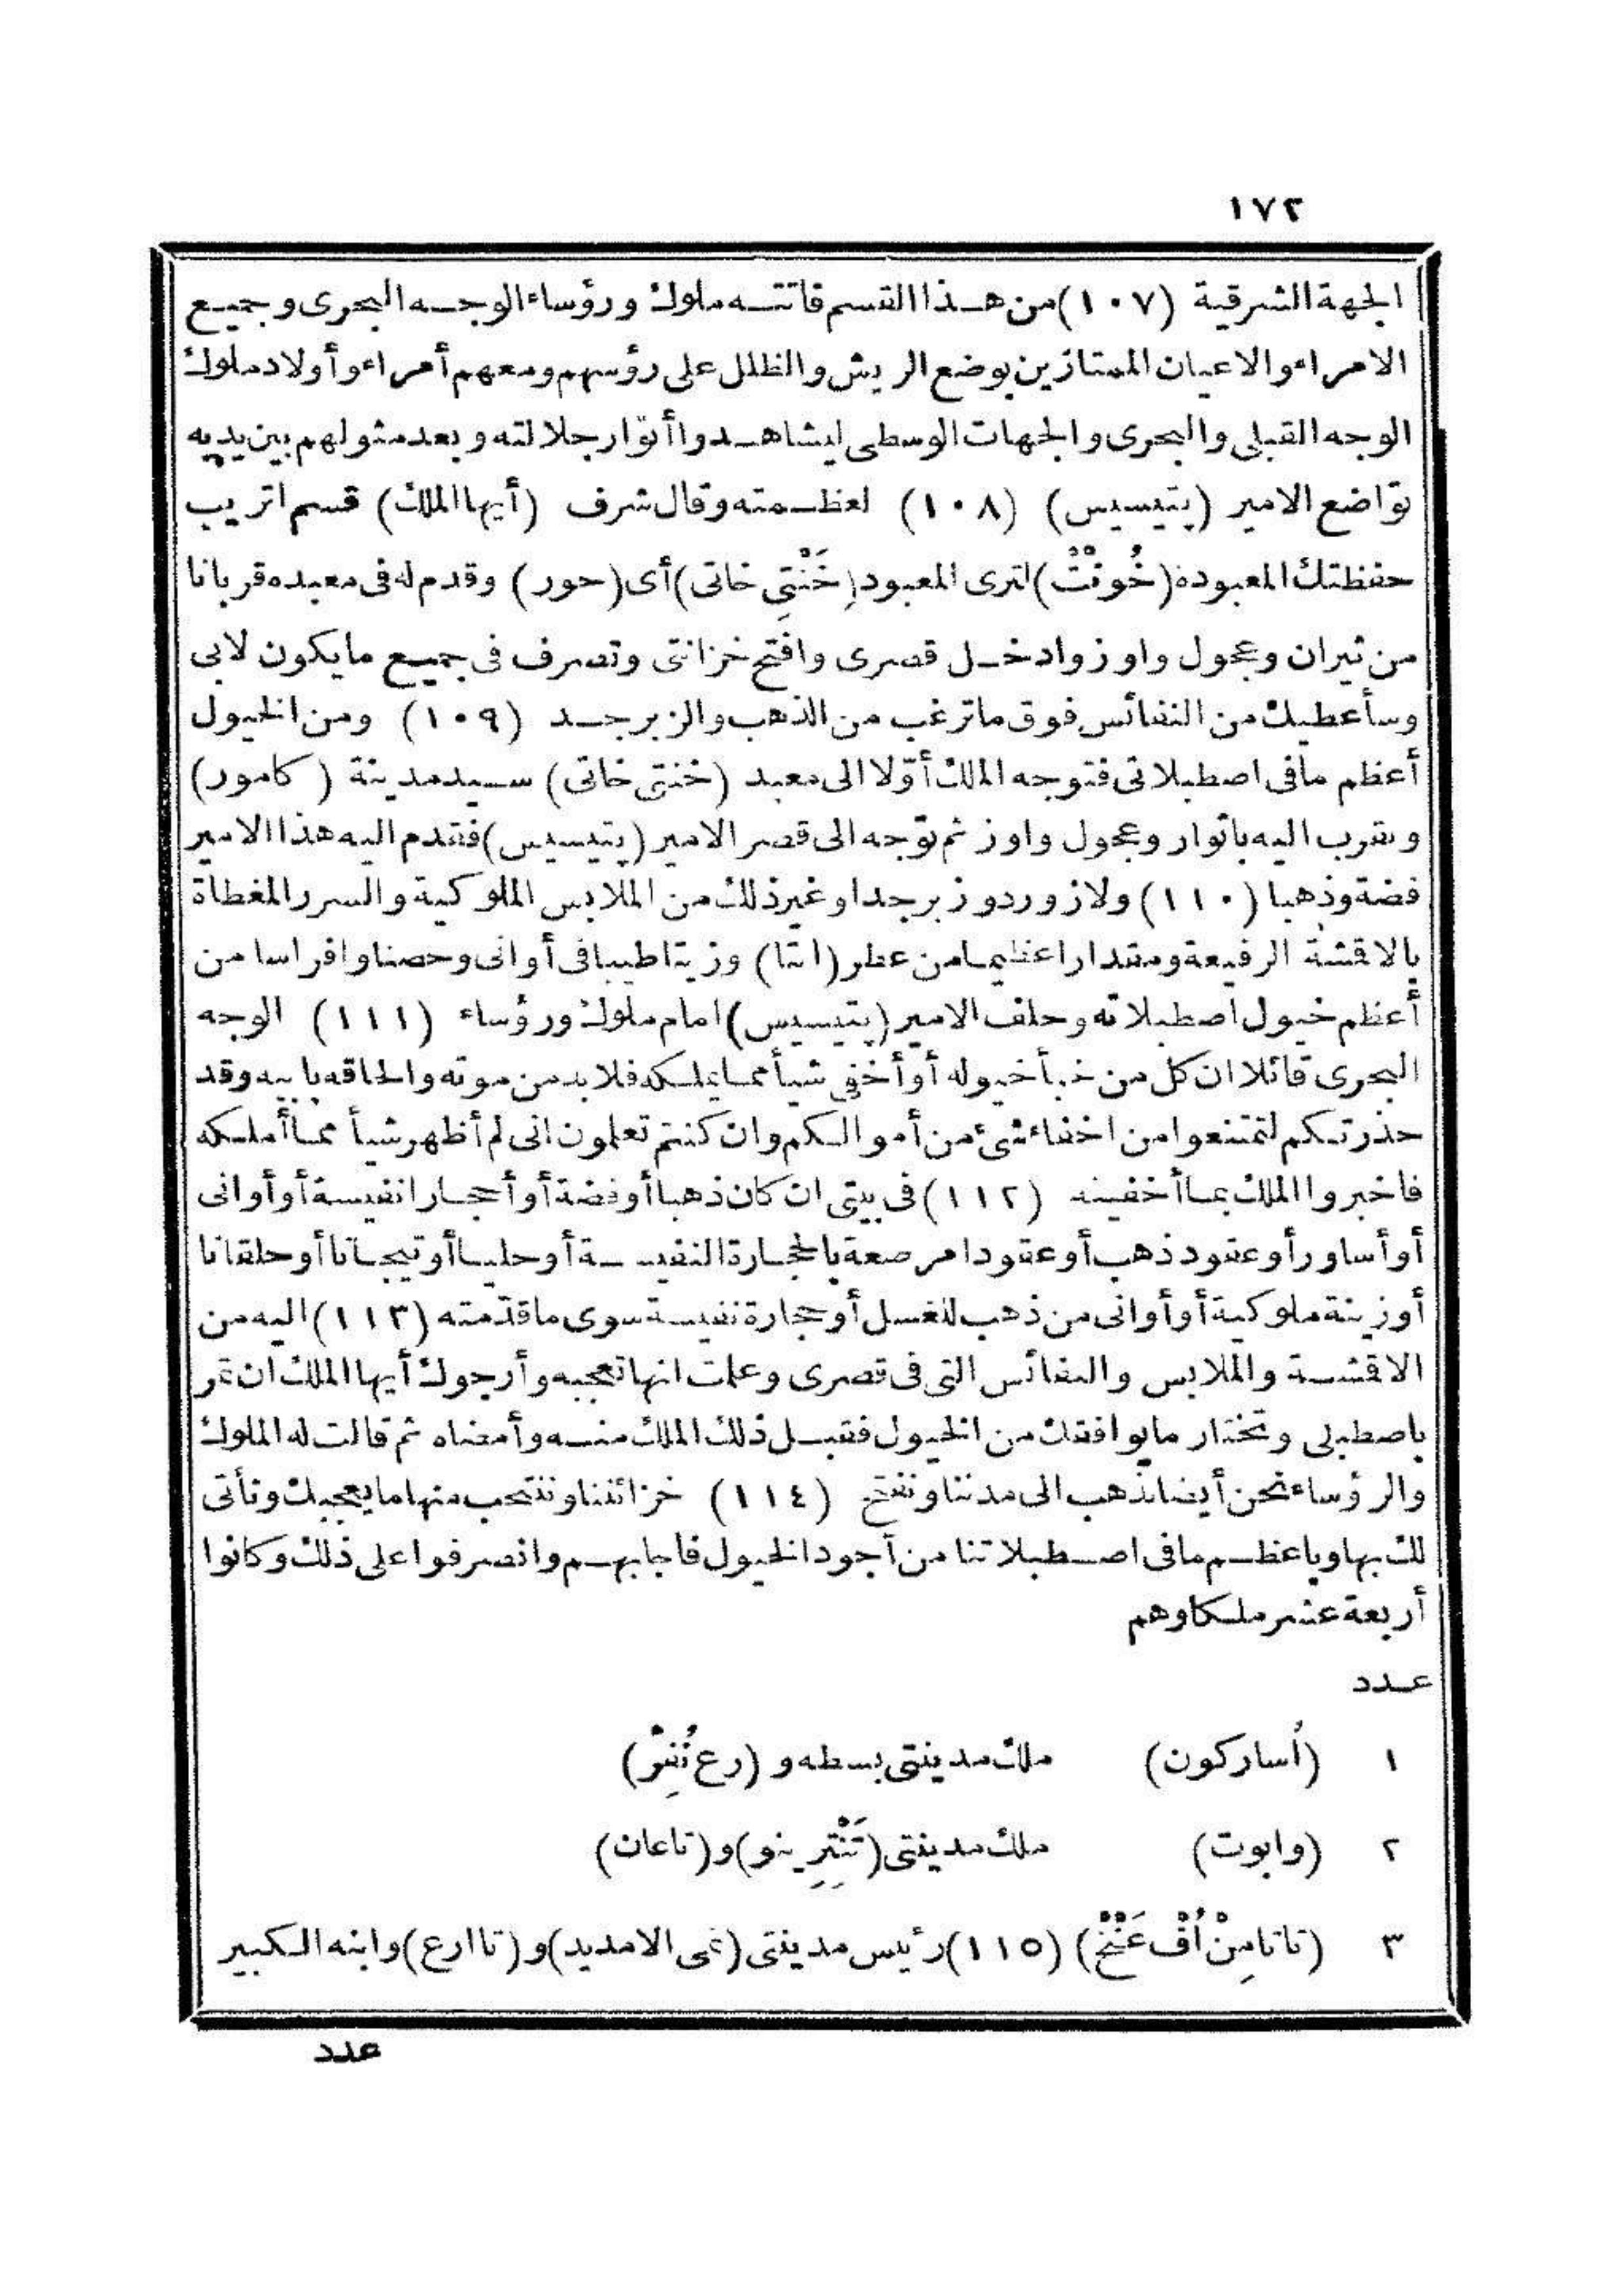 ١٧٢
الجهة الشرقية (١٠٧) من هذا القسم فاتته ملوك ورؤساء الوجه البحرى وجميع
الامراء والاعيان الممتازين بوضع الريش والظلل على رؤسهم ومعهم أمراء وأولاد ملوك
الوجه القبلى والبحرى والجهات الوسطى ليشاهدوا أنوار جلالته وبعد مثولهم بين يديه
تواضع الامير (پتيسيس) (١٠٨) لعظمته وقال شرف (أيها الملك) قسم اتريب
حفظتك المعبودة (خُونْتْ) لترى المعبود (خَنْتِى خاتى) أى (حور) وقدم له فى معبده قربانا
من ثيران وعجول واوز وادخل قصرى وافتح خزانتى وتصرف فى جميع ما يكون لابى
وسأعطيك من النفائس فوق ما ترغب من الذهب والزبرجد (١٠٩) ومن الخيول
أعظم ما فى اصطبلاتى فتوجه الملك أوّلا الى معبد (خنتى خاتى) سيد مدينة (كامور)
وتقرب اليه باثوار وعجول واوز ثم توّجه الى قصر الامير (پتيسيس) فقدم اليه هذا الامير
فضة وذهبا (١١٠) ولازورد وزبرجدا وغير ذلك من الملابس الملوكية والسرر المغطاة
بالاقشة الرفيعة ومقدارا عظيما من عطر (انتا) وزيتا طيبا فى أوانى وحصنا وافراسا من
أعظم خيول اصطبلاته وحلف الامير (پتيسيس) امام ملوك ورؤساء (١١١) الوجه
البحرى قائلا ان كل من خبأ خيوله أو أخفى شيأ مما يملكه فلا بد من موته والحاقه بابيه وقد
حذرتكم لتمتنعوا من اخفاء شئ من أموالكم وان كنتم تعلمون انى لم أظهر شيأ مما أملكه
فاخبروا الملك بما أخفيته (١١٢) فى بيتى ان كان ذهبا أو فضة أو أحجارا نفيسة أو أوانى
أو أساور أو عقود ذهب أو عقودا مرصعة بالحجارة النفيسة أو حليا أو تيجانا أو حلقانا
أو زينة ملوكية أو أوانى من ذهب للغسل أو حجارة نفيسة سوى ما قدّمته (١١٣) اليه من
الاقشة والملابس والنفائس التى فى قصرى وعلمت انها تعجبه وأرجوك أيها الملك ان تمر
باصطبلى وتختار ما يوافقك من الخيول فقبل ذلك الملك منه وأمضاه ثم قالت له الملوك
والرؤساء نحن أيضا نذهب الى مدننا ونفتح (١١٤) خزائننا وننتخب منها ما يعجبك ونأتى
لك بها وباعظم ما فى اصطبلاتنا من أجود الخيول فاجابهم وانصرفوا على ذلك وكانوا
أربعة عشر ملكا وهم
عدد
١ (أُساركون) ملك مدينتى بسطه و (رع نُفِرْ)
٢ (وابوت) ملك مدينتى (تَنْتِرِينو) و (تاعان)
٣ (تاتامِنْ اُفْ عَنْخْ) (١١٥) رئيس مدينتى (تمى الامديد) و (تاارع) وابنه الكبير
عدد